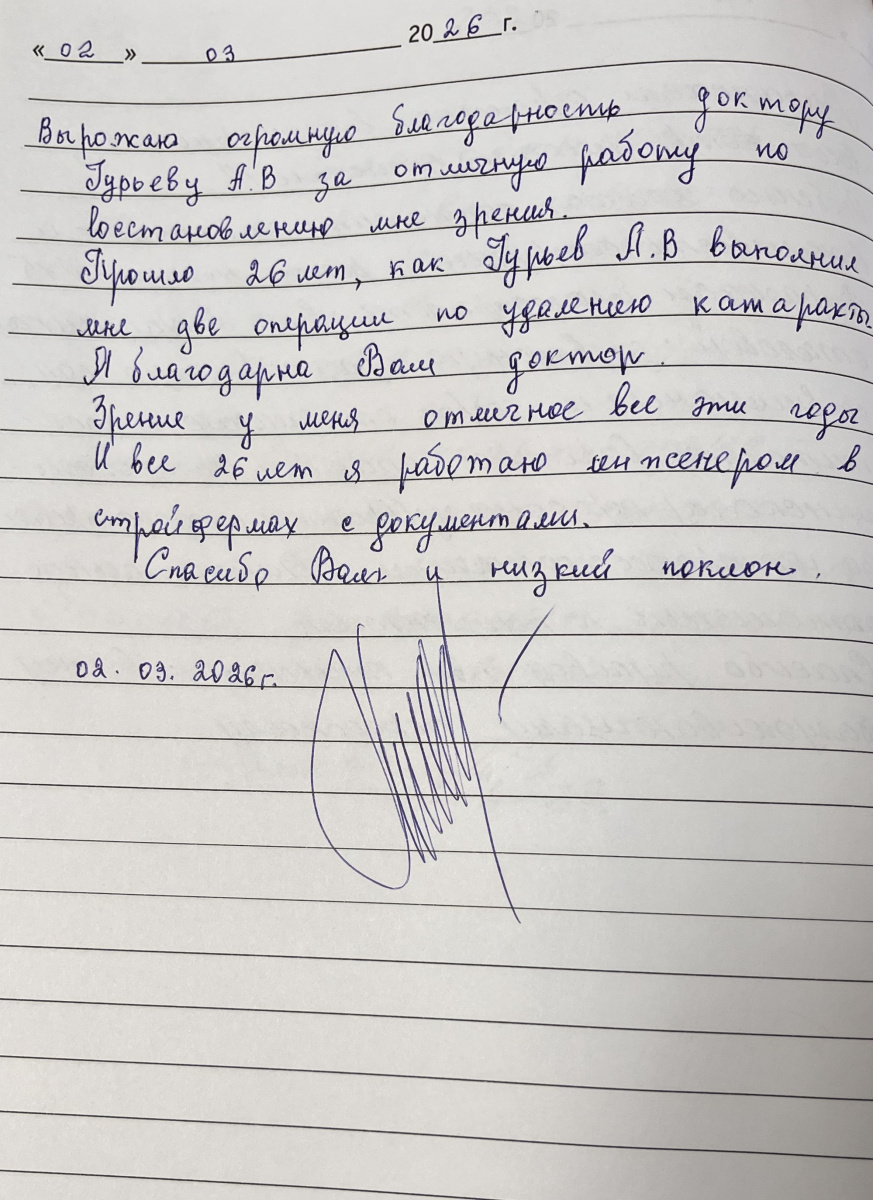 «02» 03 2026 г.
Вырожаю огромную благодарность доктору
Гурьеву А.В за отличную работу по
восстановлению мне зрения.
Прошло 26 лет, как Гурьев А.В выполнил
мне две операции по удалению катаракты
Я благодарна Вам доктор.
Зрение у меня отличное все эти годы
И все 26 лет я работаю инженером в
стройфермах с документами.
Спасибо Вам и низкий поклон.
02. 03. 2026 г.